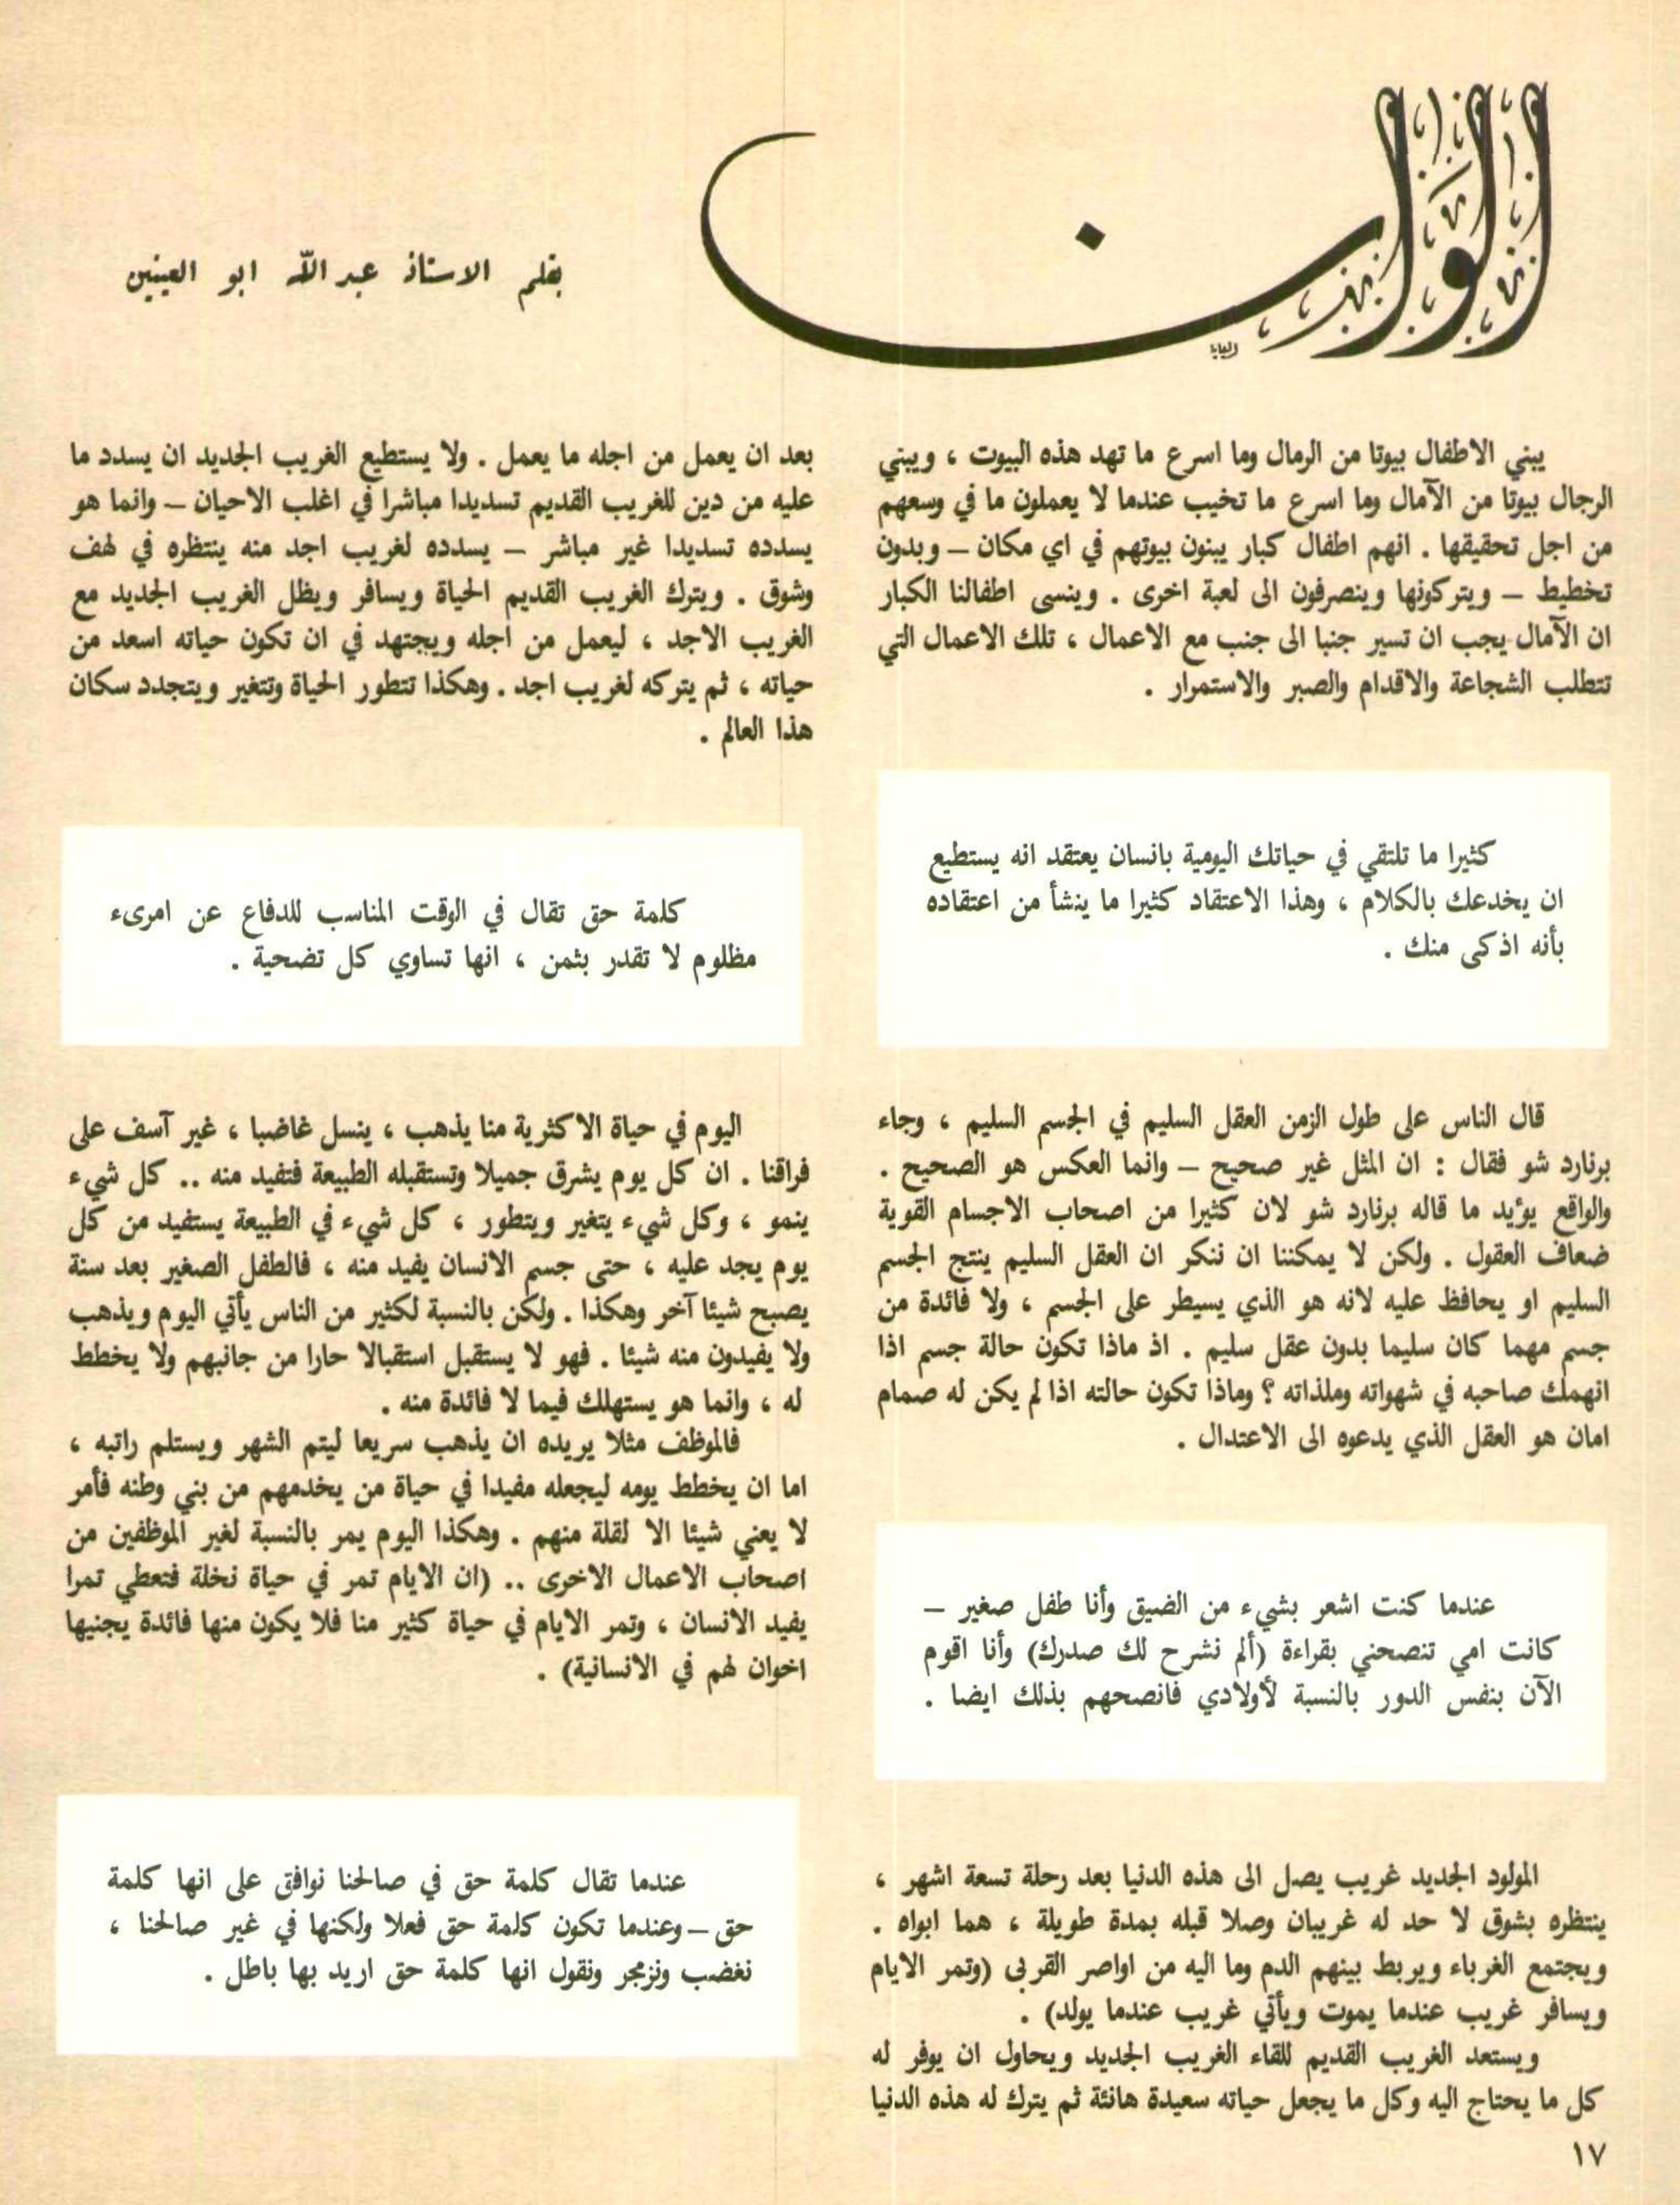 الوان
بقلم الاستاذ عبد الله ابو العينين
يبني الاطفال بيوتا من الرمال وما اسرع ما تهد هذه البيوت ، ويبني
الرجال بيوتا من الآمال وما اسرع ما تخيب عندما لا يعملون ما في وسعهم
من اجل تحقيقها . انهم اطفال كبار يبنون بيوتهم في اي مكان – وبدون
تخطيط – ويتركونها وينصرفون الى لعبة اخرى . وينسى اطفالنا الكبار
ان الآمال يجب ان تسير جنبا الى جنب مع الاعمال ، تلك الاعمال التي
تتطلب الشجاعة والاقدام والصبر والاستمرار .
كثيرا ما تلتقي في حياتك اليومية بانسان يعتقد انه يستطيع
ان يخدعك بالكلام ، وهذا الاعتقاد كثيرا ما ينشأ من اعتقاده
بأنه اذكى منك .
قال الناس على طول الزمن العقل السليم في الجسم السليم ، وجاء
برنارد شو فقال : ان المثل غير صحيح – وانما العكس هو الصحيح .
والواقع يؤيد ما قاله برنارد شو لان كثيرا من اصحاب الاجسام القوية
ضعاف العقول . ولكن لا يمكننا ان ننكر ان العقل السليم ينتج الجسم
السليم او يحافظ عليه لانه هو الذي يسيطر على الجسم ، ولا فائدة من
جسم مهما كان سليما بدون عقل سليم . اذ ماذا تكون حالة جسم اذا
انهمك صاحبه في شهواته وملذاته ؟ وماذا تكون حالته اذا لم يكن له صمام
امان هو العقل الذي يدعوه الى الاعتدال .
عندما كنت اشعر بشيء من الضيق وأنا طفل صغير –
كانت امي تنصحني بقراءة (ألم نشرح لك صدرك) وأنا اقوم
الآن بنفس الدور بالنسبة لأولادي فانصحهم بذلك ايضا .
المولود الجديد غريب يصل الى هذه الدنيا بعد رحلة تسعة اشهر ،
ينتظره بشوق لا حد له غريبان وصلا قبله بمدة طويلة ، هما ابواه .
ويجتمع الغرباء ويربط بينهم الدم وما اليه من اواصر القربى (وتمر الايام
ويسافر غريب عندما يموت ويأتي غريب عندما يولد) .
ويستعد الغريب القديم للقاء الغريب الجديد ويحاول ان يوفر له
كل ما يحتاج اليه وكل ما يجعل حياته سعيدة هانئة ثم يترك له هذه الدنيا
بعد ان يعمل من اجله ما يعمل . ولا يستطيع الغريب الجديد ان يسدد ما
عليه من دين للغريب القديم تسديدا مباشرا في اغلب الاحيان – وانما هو
يسدده تسديدا غير مباشر – يسدده لغريب اجد منه ينتظره في لهف
وشوق . ويترك الغريب القديم الحياة ويسافر ويظل الغريب الجديد مع
الغريب الاجد ، ليعمل من اجله ويجتهد في ان تكون حياته اسعد من
حياته ، ثم يتركه لغريب اجد . وهكذا تتطور الحياة وتتغير ويتجدد سكان
هذا العالم .
كلمة حق تقال في الوقت المناسب للدفاع عن امرىء
مظلوم لا تقدر بثمن ، انها تساوي كل تضحية .
اليوم في حياة الاكثرية منا يذهب ، ينسل غاضبا ، غير آسف على
فراقنا . ان كل يوم يشرق جميلا وتستقبله الطبيعة فتفيد منه .. كل شيء
ينمو ، وكل شيء يتغير ويتطور ، كل شيء في الطبيعة يستفيد من كل
يوم يجد عليه ، حتى جسم الانسان يفيد منه ، فالطفل الصغير بعد سنة
يصبح شيئا آخر وهكذا . ولكن بالنسبة لكثير من الناس يأتي اليوم ويذهب
ولا يفيدون منه شيئا . فهو لا يستقبل استقبالا حارا من جانبهم ولا يخطط
له ، وانما هو يستهلك فيما لا فائدة منه .
فالموظف مثلا يريده ان يذهب سريعا ليتم الشهر ويستلم راتبه ،
اما ان يخطط يومه ليجعله مفيدا في حياة من يخدمهم من بني وطنه فأمر
لا يعني شيئا الا لقلة منهم . وهكذا اليوم يمر بالنسبة لغير الموظفين من
اصحاب الاعمال الاخرى .. (ان الايام تمر في حياة نخلة فتعطي تمرا
يفيد الانسان ، وتمر الايام في حياة كثير منا فلا يكون منها فائدة يجنيها
اخوان لهم في الانسانية) .
عندما تقال كلمة حق في صالحنا نوافق على انها كلمة
حق – وعندما تكون كلمة حق فعلا ولكنها في غير صالحنا ،
نغضب ونزمجر ونقول انها كلمة حق اريد بها باطل .
١٧